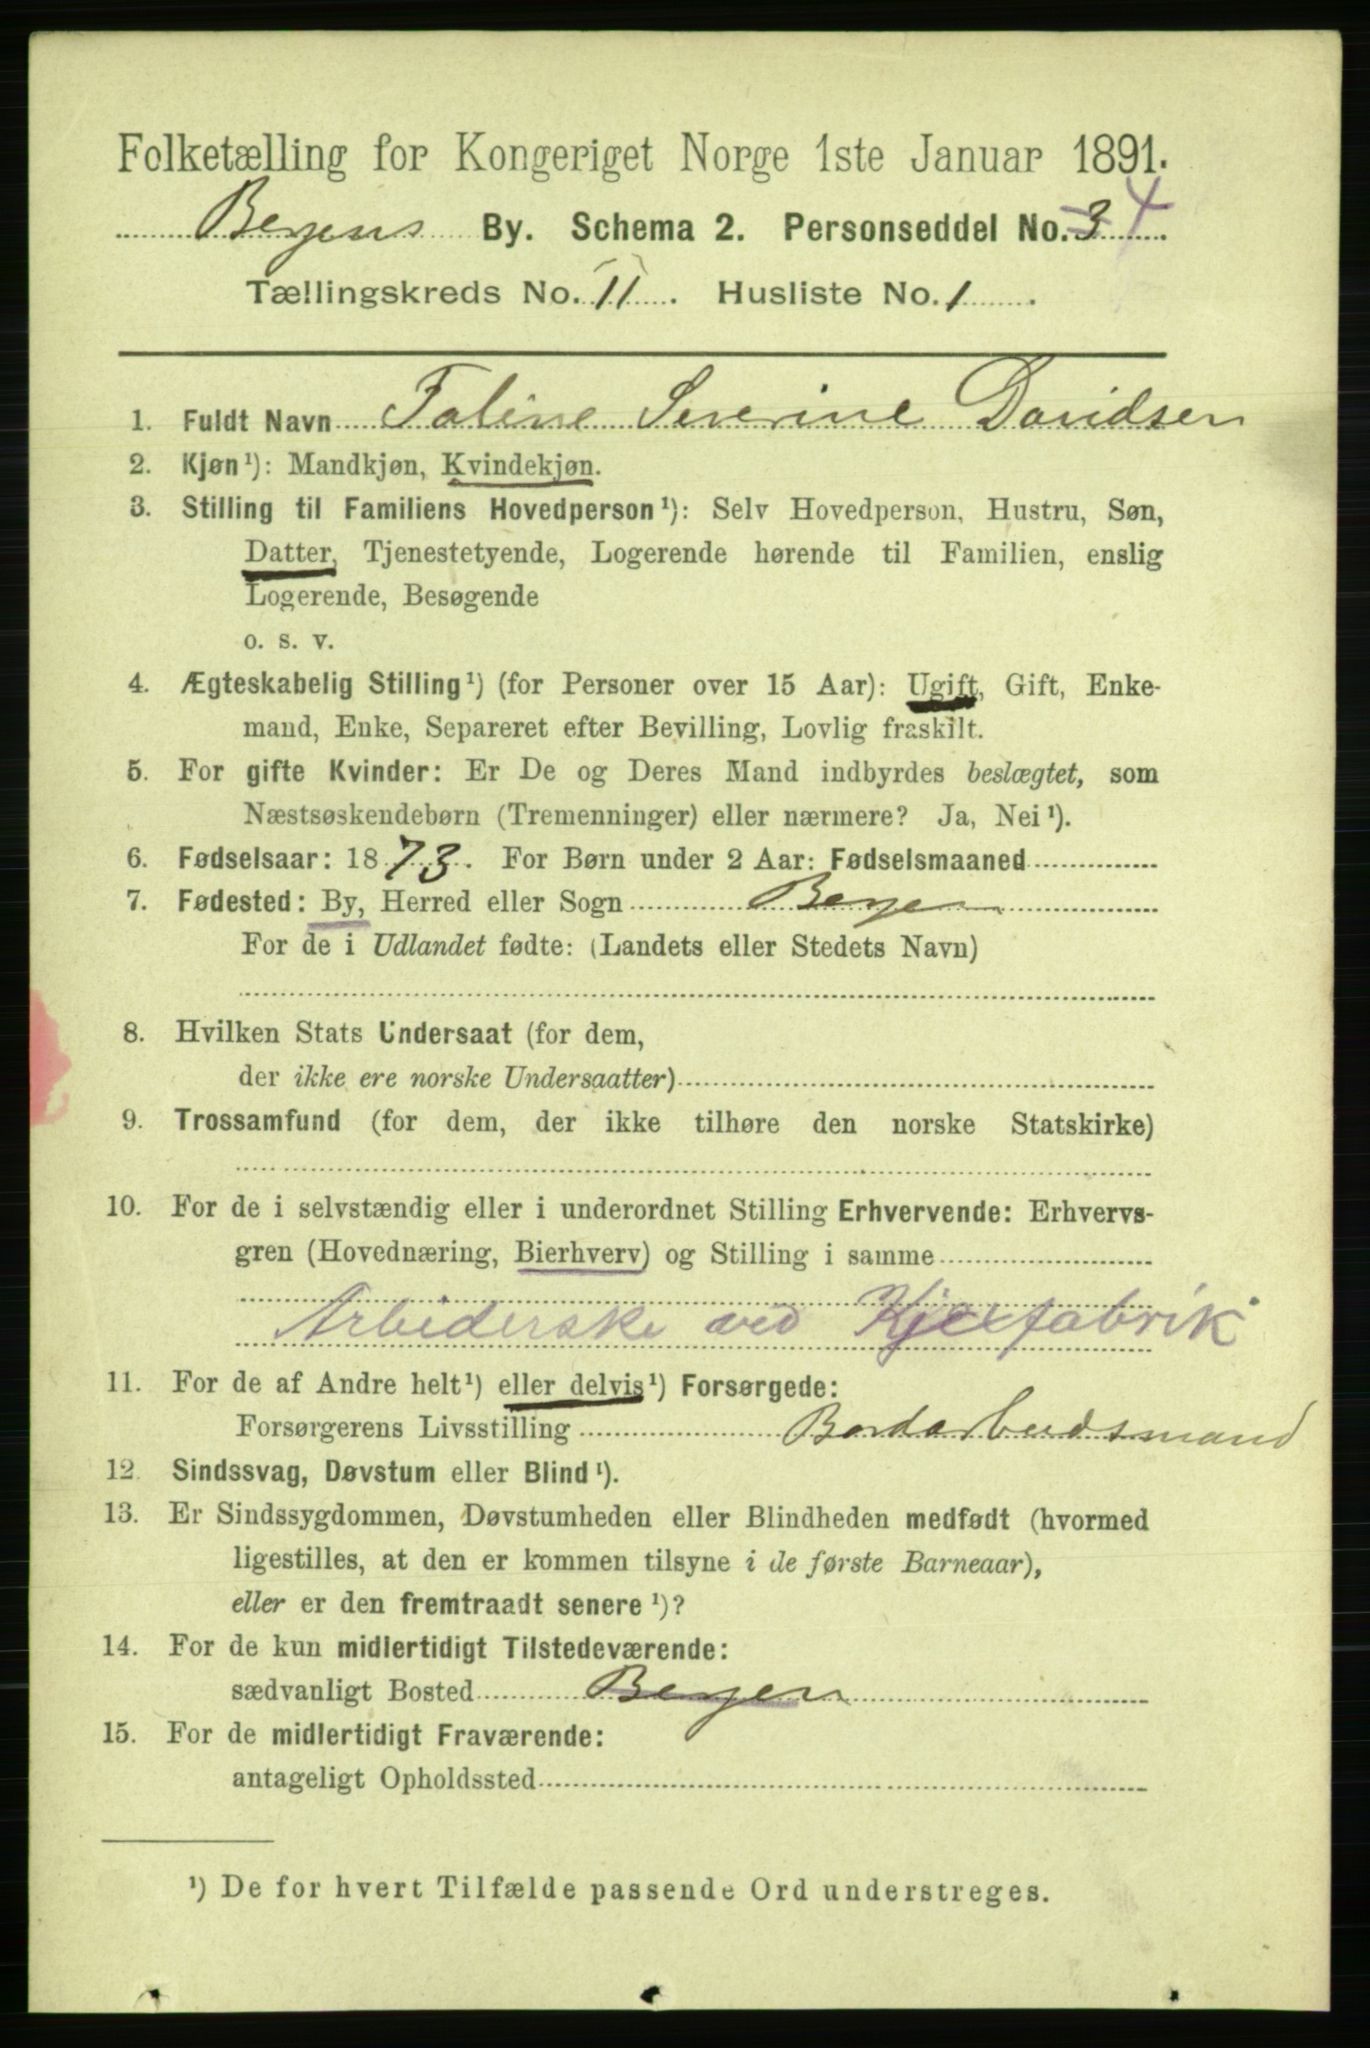 Folketælling for Kongeriget Norge 1ste Januar 1891.
Bergens By. Schema 2. Personseddel No. 3 4
Tællingskreds No. 11. Husliste No. 1.
1. Fuldt Navn Faline Severine Davidsen
2. Kjøn¹): Mandkjøn, Kvindekjøn.
3. Stilling til Familiens Hovedperson¹): Selv Hovedperson, Hustru, Søn,
Datter, Tjenestetyende, Logerende hørende til Familien, enslig
Logerende, Besøgende
o. s. v.
4. Ægteskabelig Stilling¹) (for Personer over 15 Aar): Ugift, Gift, Enke-
mand, Enke, Separeret efter Bevilling, Lovlig fraskilt.
5. For gifte Kvinder: Er De og Deres Mand indbyrdes beslægtet, som
Næstsøskendebørn (Tremenninger) eller nærmere? Ja, Nei¹).
6. Fødselsaar: 1873. For Børn under 2 Aar: Fødselsmaaned
7. Fødested: By, Herred eller Sogn Bergen
For de i Udlandet fødte: (Landets eller Stedets Navn)
8. Hvilken Stats Undersaat (for dem,
der ikke ere norske Undersaatter)
9. Trossamfund (for dem, der ikke tilhøre den norske Statskirke)
10. For de i selvstændig eller i underordnet Stilling Erhvervende: Erhvervs-
gren (Hovednæring, Bierhverv) og Stilling i samme
Arbeiderske ved Kjexfabrik
11. For de af Andre helt¹) eller delvis¹) Forsørgede:
Forsørgerens Livsstilling
12. Sindssvag, Døvstum eller Blind¹).
13. Er Sindssygdommen, Døvstumheden eller Blindheden medfødt (hvormed
ligestilles, at den er kommen tilsyne i de første Barneaar),
eller er den fremtraadt senere¹)?
14. For de kun midlertidigt Tilstedeværende:
sædvanligt Bosted Bergen
15. For de midlertidigt Fraværende:
antageligt Opholdssted
¹) De for hvert Tilfælde passende Ord understreges.